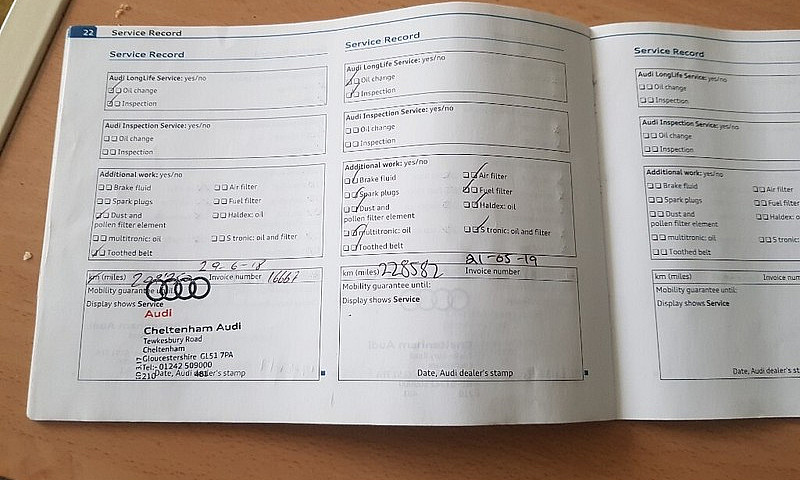 22 Service Record
Service Record
Audi LongLife Service: yes/no
Oil change
Inspection
Audi Inspection Service: yes/no
Oil change
Inspection
Additional work: yes/no
Brake fluid Air filter
Spark plugs Fuel filter
Dust and Haldex: oil
pollen filter element
multitronic: oil S tronic: oil and filter
Toothed belt
29-6-18
km (miles) Invoice number 16667
Mobility guarantee until:
Display shows Service
Audi
Cheltenham Audi
Tewkesbury Road
Cheltenham
Gloucestershire GL51 7PA
Tel:- 01242 509000
Date, Audi dealer's stamp
Service Record
Audi LongLife Service: yes/no
Oil change
Inspection
Audi Inspection Service: yes/no
Oil change
Inspection
Additional work: yes/no
Brake fluid Air filter
Spark plugs Fuel filter
Dust and Haldex: oil
pollen filter element
multitronic: oil S tronic: oil and filter
Toothed belt
21-05-19
km (miles) 228582 Invoice number
Mobility guarantee until:
Display shows Service
Date, Audi dealer's stamp
Service Record
Audi LongLife Service: yes/no
Oil change
Inspection
Audi Inspection Service: yes/no
Oil change
Inspection
Additional work: yes/no
Brake fluid Air filter
Spark plugs Fuel filter
Dust and Haldex:
pollen filter element
multitronic: oil S tronic:
Toothed belt
km (miles) Invoice
Mobility guarantee until:
Display shows Service
Date, Audi dealer's